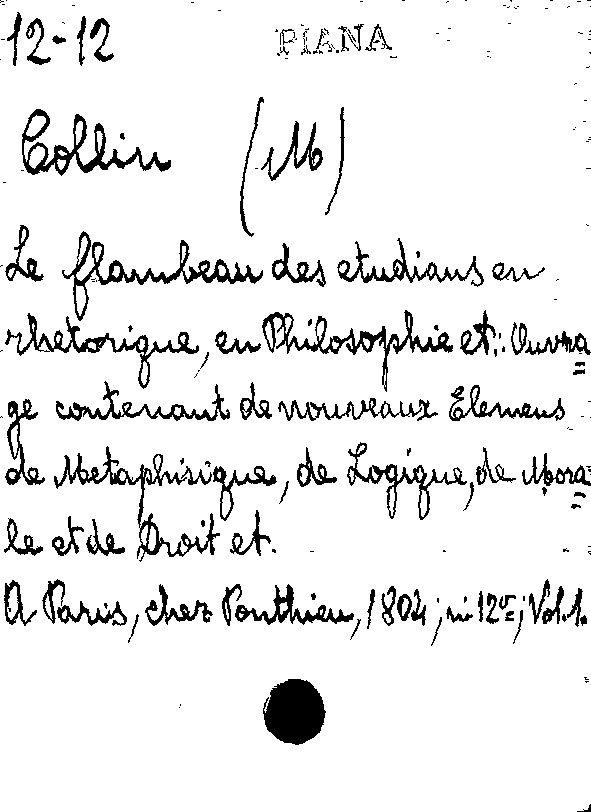 12-12 PIANA
Collin (M)
Le flambeau des etudians en
rhetorique, en Philosophie et: Ouvra=
ge contenant de nouveaux Elemens
de Metaphisique, de Logique, de Mora=
le et de Droit et.
A Paris, chez Ponthieu, 1804; in 12º=; Vol. 1.